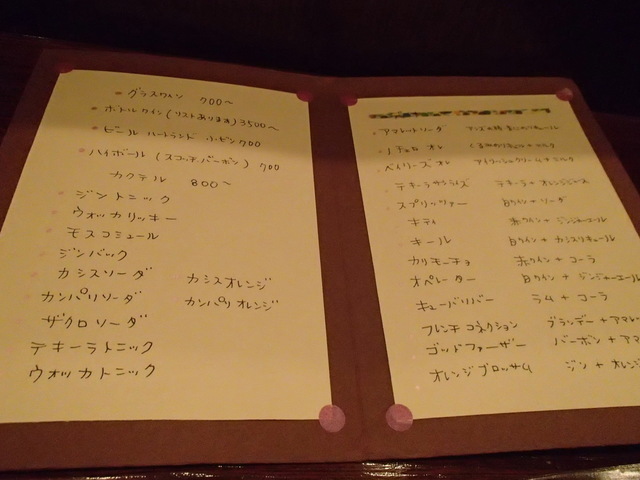 グラスワイン 700〜
ボトルワイン(リストあります)3500〜
ビール ハートランド 小ビン700
ハイボール (スコッチ、バーボン) 700
カクテル 800〜
ジントニック
ウォッカリッキー
モスコミュール
ジンバック
カシスソーダ カシスオレンジ
カンパリソーダ カンパリオレンジ
ザクロソーダ
テキーラトニック
ウォッカトニック
アマレットソーダ
ノチェロ オレ
ベイリーズオレ アイリッシュクリーム+ミルク
テキーラサンライズ テキーラ+オレンジジュース
スプリッツァー 白ワイン+ソーダ
キティ 赤ワイン+ジンジャーエール
キール 白ワイン+カシスリキュール
カリモーチョ 赤ワイン+コーラ
オペレーター 白ワイン+ジンジャーエール
キューバリバー ラム+コーラ
フレンチコネクション ブランデー+アマレ
ゴッドファーザー バーボン+アマ
オレンジブロッサム ジン+オレン